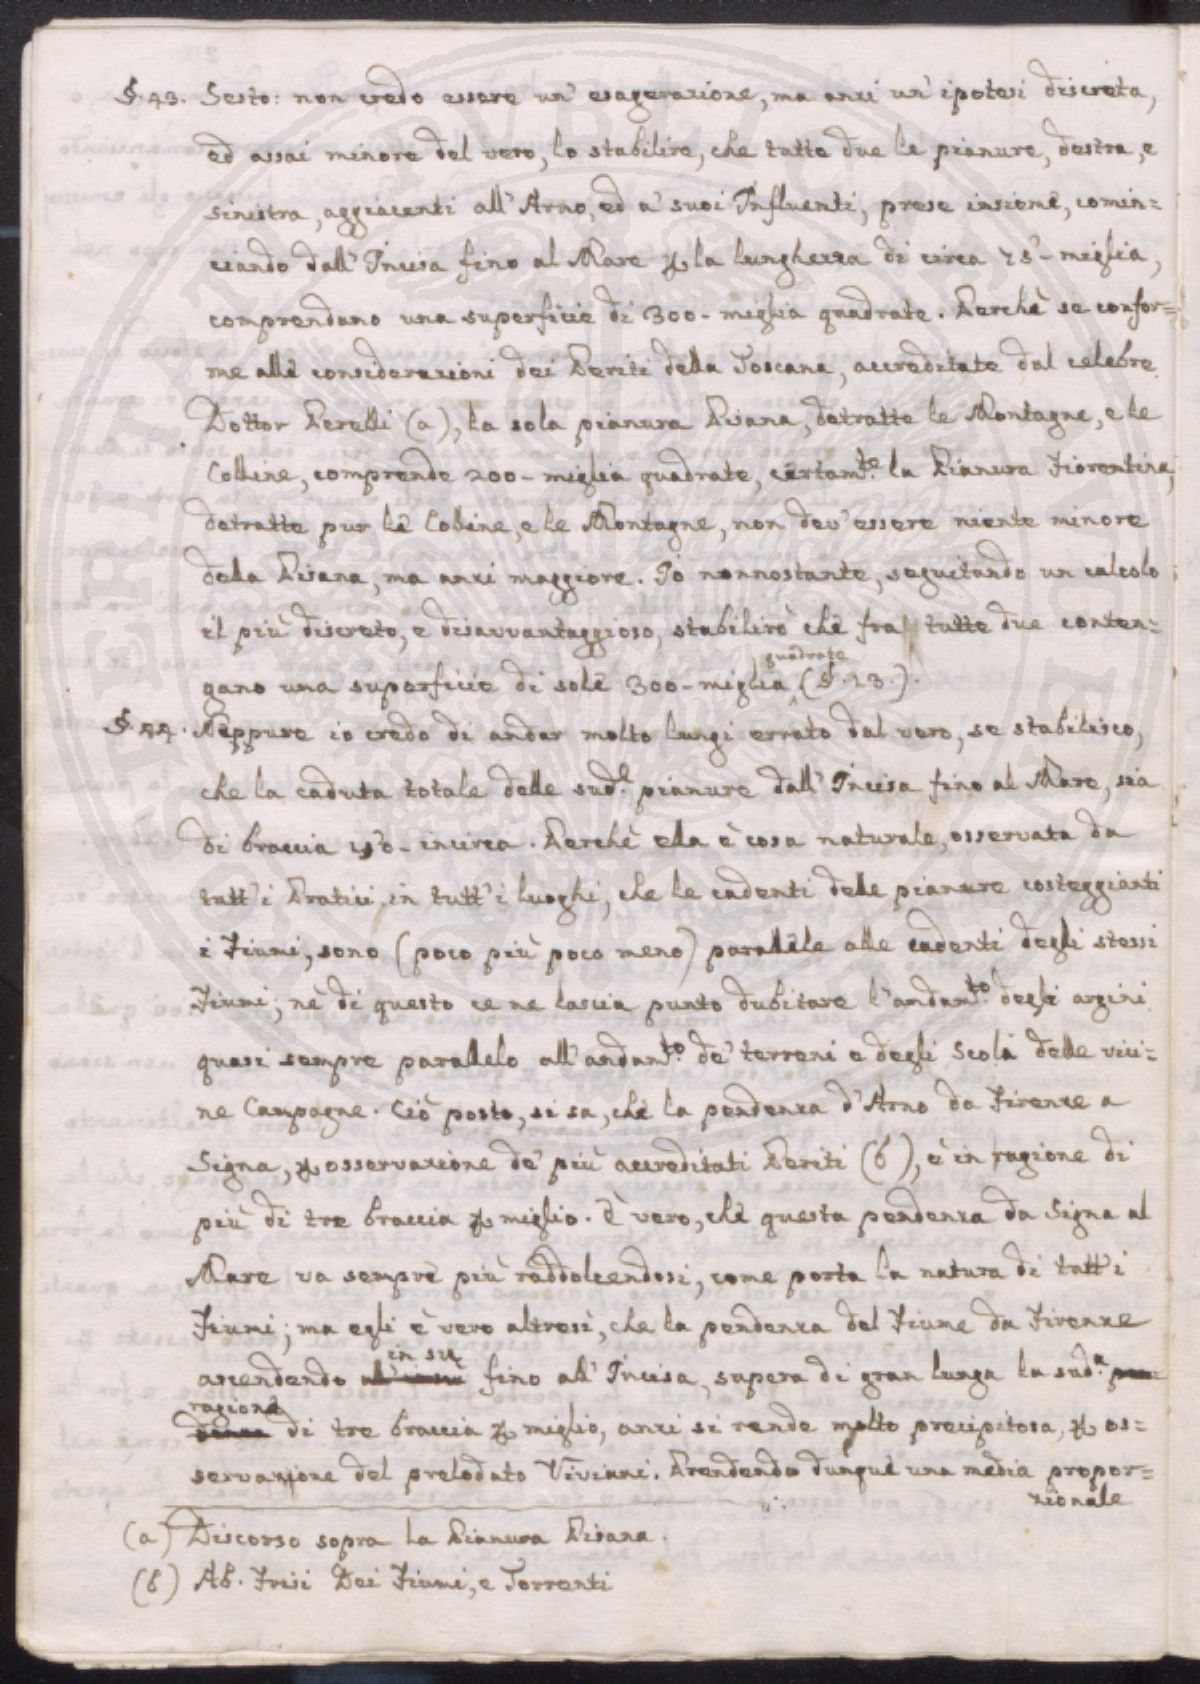 §. 43. Sesto: non credo essere un' esagerazione, ma anzi un' ipotesi discreta,
ed assai minore del vero, lo stabilire, che tutte due le pianure, destra, e
sinistra, aggiacenti all' Arno, ed a' suoi Influenti, prese insieme, comin=
ciando dall' Incisa fino al Mare p la lunghezza di circa 75 - miglia,
comprendano una superficie di 300 - miglia quadrate. Perchè se confor=
me alle considerazioni dei Periti della Toscana, accreditate dal celebre
Dottor Perelli (a), la sola pianura Pisana, detratte le Montagne, e le
Colline, comprende 200 - miglia quadrate, certam.te la Pianura Fiorentina,
detratte pur le Colline, e le Montagne, non dev' essere niente minore
della Pisana, ma anzi maggiore. Io nonnostante, seguitando un calcolo
il più discreto, e disavvantaggioso, stabilirò che fra tutte due conten=
quadrate
gano una superficie di sole 300 - miglia (§. 23.).
§. 44. Neppure io credo di andar molto lungi errato dal vero, se stabilisco,
che la caduta totale delle sud.e pianure dall' Incisa fino al Mare, sia
di braccia 150 - incirca. Perchè ella è cosa naturale, osservata da
tutt' i Pratici, in tutt' i luoghi, che le cadenti delle pianure costeggianti
i Fiumi, sono (poco più poco meno) parallele alle cadenti degli stessi
Fiumi; nè di questo ce ne lascia punto dubitare l' andam.to degli argini
quasi sempre parallelo all' andam.to de' terreni e degli Scoli delle vici=
ne Campagne. Ciò posto, si sa, che la pendenza d' Arno da Firenze a
Signa, p osservazione de' più accreditati Periti (b), è in ragione di
più di tre braccia p miglio. È vero, che questa pendenza da Signa al
Mare va sempre più raddolcendosi, come porta la natura di tutt' i
Fiumi; ma egli è vero altresì, che la pendenza del Fiume da Firenze
in su
ascendendo fino all' Incisa, supera di gran lunga la sud.a pen=
ragione
denza di tre braccia p miglio, anzi si rende molto precipitosa, p os=
servazione del prelodato Viviani. Prendendo dunque una media propor=
zionale
(a) Discorso sopra la Pianura Pisana.
(b) Ab. Frisi Dei Fiumi, e Torrenti